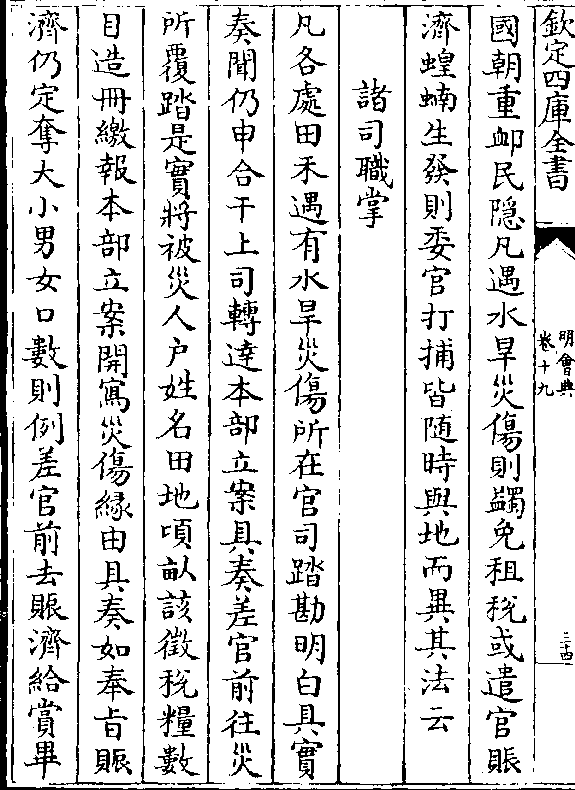 欽定四庫全書
明會典
卷十九
三十四
國朝重䘏民隱凡遇水旱災傷則蠲免租稅或遣官賑
濟蝗蝻生發則委官打捕皆随時與地而異其法云
諸司職掌
凡各處田禾遇有水旱災傷所在官司踏勘明白具實
奏聞仍申合干上司轉達本部立案具奏差官前往災
所覆踏是實將被災人户姓名田地頃畝該徵稅糧數
目造冊繳報本部立案開寫災傷緣由具奏如奉旨賑
濟仍定奪大小男女口數則例差官前去賑濟給賞畢